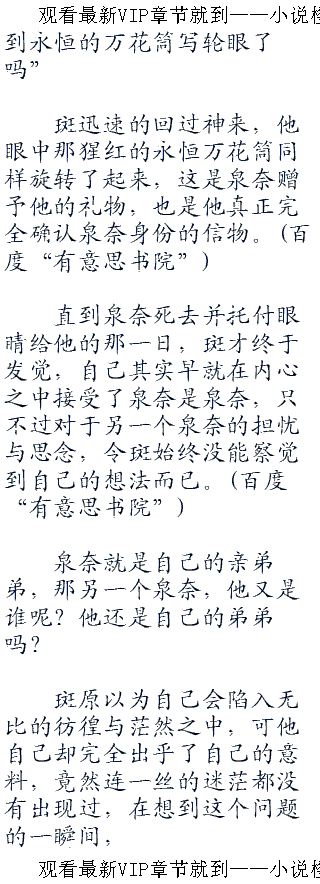 观看最新VIP章节就到——小说检
到永恒的万花筒写轮眼了
吗”
斑迅速的回过神来，他
眼中那猩红的永恒万花筒同
样旋转了起来，这是泉奈赠
予他的礼物，也是他真正完
全确认泉奈身份的信物。(百
度“有意思书院”)
直到泉奈死去并托付眼
睛给他的那一日，斑才终于
发觉，自己其实早就在内心
之中接受了泉奈是泉奈，只
不过对于另一个泉奈的担忧
与思念，令斑始终没能察觉
到自己的想法而已。(百度
“有意思书院”)
泉奈就是自己的亲弟
弟，那另一个泉奈，他又是
谁呢？他还是自己的弟弟
吗？
斑原以为自己会陷入无
比的彷徨与茫然之中，可他
自己却完全出乎了自己的意
料，竟然连一丝的迷茫都没
有出现过，在想到这个问题
的一瞬间，
观看最新VIP章节就到——小说检